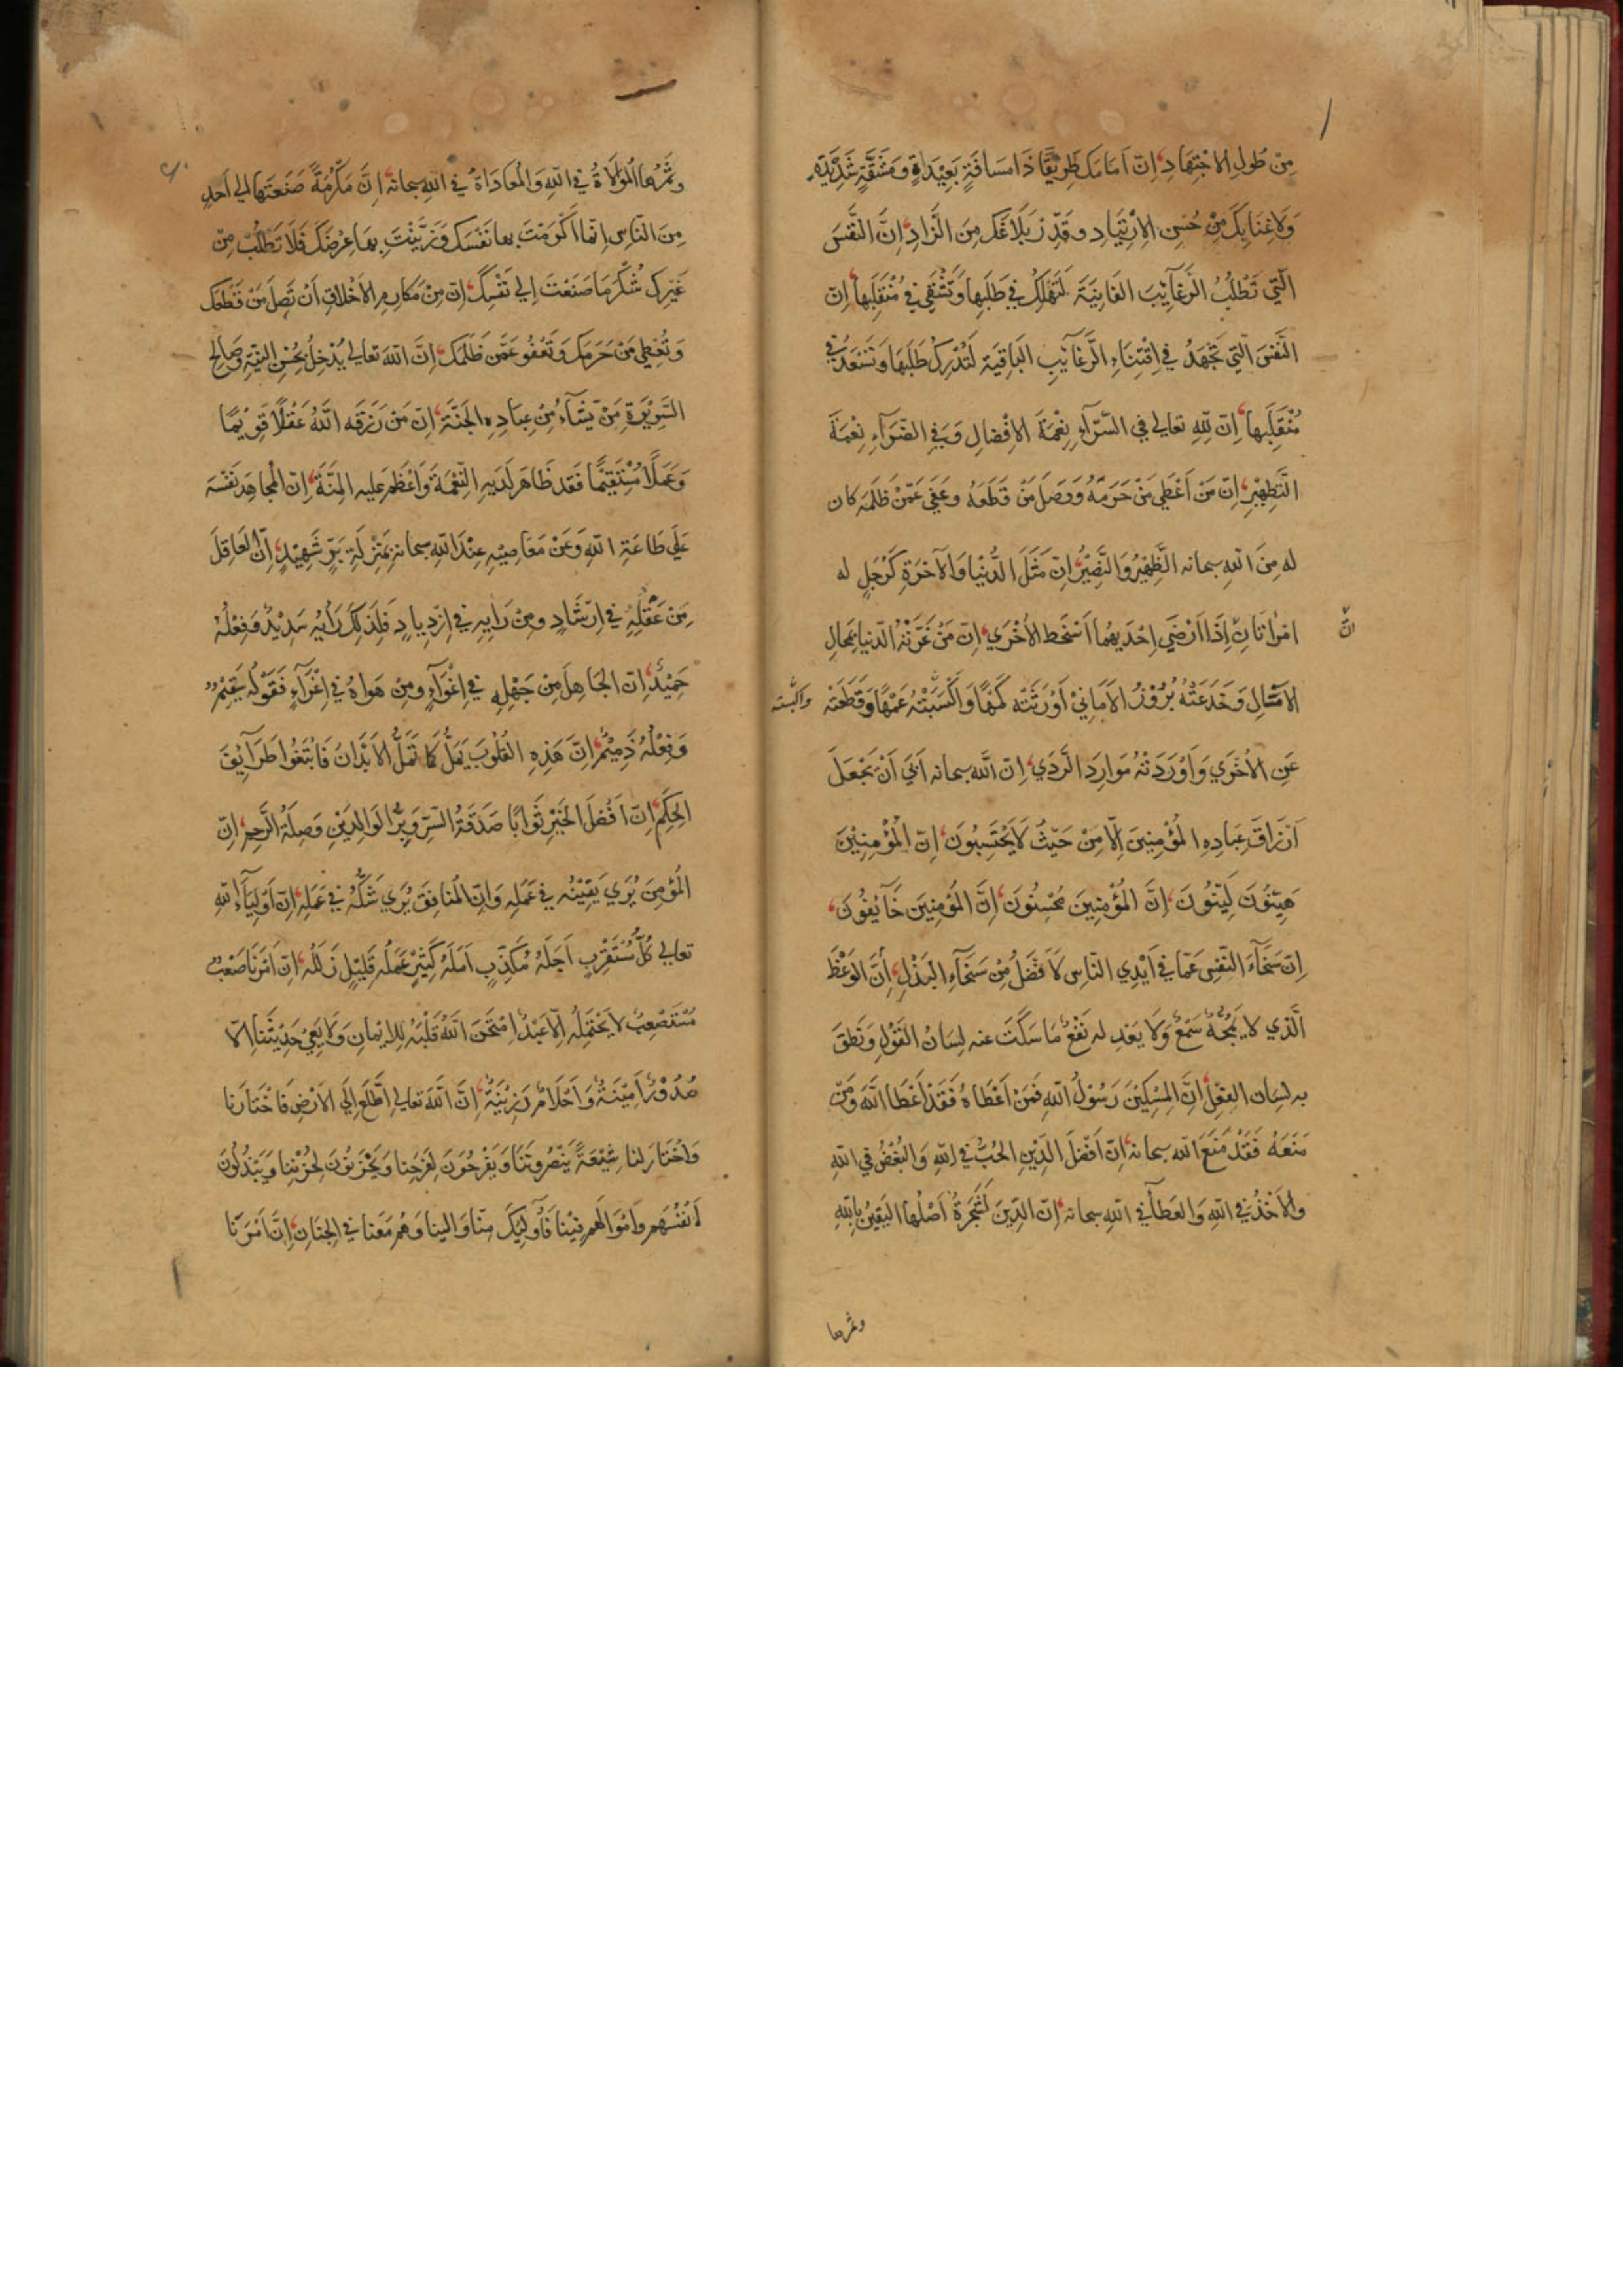 مِنْ طُولِ الاجْتِهَادِ، اِنّ اَمَامَك طَرِيْقًا ذَا مَسَافَةٍ بَعِيْدَةٍ وَمَشَقَّةٍ شَدِيْدَةٍ
وَلَاغِنَا بِكَ مِنْ حُسْنِ الاِرْتِيَادِ وقَدِّرْ بَلَاغَكَ مِنَ الزَّادِ، اِنَّ النَّفْسَ
الَّتِي تَطْلُبُ الرَّغَآئِبَ الفَانِيَةَ لَتَهْلِكُ فِي طَلَبِها وَتَشْقَي فِي مُنْقَلَبِها، اِنّ
النَّفْسَ الَّتِي تَجْهَدُ فِي اقْتِنَاءِ الرَّغَآئِبِ البَاقِيَةِ لَتُدْرِكُ طَلَبَهَا وَتَسْعَدُ فِي
مُنْقَلَبِها، اِنّ لِلّٰهِ تعالي فِي السَّرَّآءِ نِعْمَةَ الاِفْضالِ وَفِي الضَّرَآءِ نِعْمَةَ
التَّطْهِيْرِ، اِنّ مَنْ اَعْطَي مَنْ حَرَمَهُ وَوَصَلَ مَنْ قَطَعَهُ وعَفَي عَمَّنْ ظَلَمَه كان
له مِنَ اللّٰهِ سبحانه الظَّهِيْرُ وَالنَّصِيْرُ، اِنّ مَثَلَ الدُّنْيَا وَالآخِرَةِ كَرَجُلٍ له
امْرَاتَانِ اِذَا اَرْضَي اِحْدَيهُما اَسْخَط الاُخْرَي، اِنّ مَنْ غَرَّتْهُ الدّنيا بِمُحَالِ
انّ
الاَمَالِ وَخَدَعَتْهُ بُزُوْرُ الاَمَانِيْ اَوْرَثَتْه كَمَهًا وَاَكْسَبَتْهُ عَمَهًا وَقَطَعَتْه
والبسته
عَنِ الاُخْرَي وَاَوْرَدَتْهُ مَوارِدَ الرَّدَي، اِنّ اللّٰه سبحانه اَبَي اَنْ يَجْعَلَ
اَرْزَاقَ عِبَادِهِ المُؤْمِنِيْنَ اِلّا مِنْ حَيْثُ لَا يَحْتَسِبُونَ، اِنّ الْمُؤْمِنِيْنَ
هَيِّنُوْنَ لَيِّنُوْنَ، اِنَّ المُؤْمِنِيْنَ مُحْسِنُونَ، اِنَّ المُؤْمِنِيْنَ خَآئِفُوْنَ،
اِنّ سَخَآءَ النَّفْسِ عَمّا فِي اَيْدِي النّاسِ لَاَفْضَلُ مِنْ سَخَآءِ البَذْلِ، اِنَّ الوَعْظَ
الَّذي لا يَمُجُّهُ سَمْعٌ وَلَا يَعْدِ له نَفْعٌ مَا سَكَتَ عنه لِسَانُ القَوْلِ وَنَطَقَ
به لِسان الفِعْلِ، اِنَّ المِسْكِيْنَ رَسُوْلُ اللّٰهِ فَمَنْ اَعْطَاهُ فَقَدْ اَعْطَا اللّٰهَ وَمَنْ
مَنَعَهُ فَقَدْ مَنَعَ اللّٰه سبحانه، اِنّ اَفْضَلَ الدِّيْنِ الحُبُّ فِي اللّٰهِ وَالبُغْضُ فِي اللّٰهِ
والاَخْذُ فِي اللّٰهِ وَالعَطَآ فِي اللّٰهِ سبحانه، اِنّ الدِّيْنَ لَشَجَرَةٌ اَصْلُها اليَقِيْنُ بِاللّٰهِ
وثمرها
وثَمَرُها المُوَالَاةُ فِي اللّٰهِ وَالمُعَادَاةُ فِي اللّٰهِ سبحانه، اِنَّ مَكْرُمَةً صَنَعْتَها اِلي اَحَدٍ
مِنَ النّاسِ اِنّما اَكْرَمْتَ بها نَفْسَكَ وَزَيَّنْتَ بِهَا عِرْضَكَ فَلَا تَطْلُبْ مِنْ
غَيْرِكَ شُكْرَ مَا صَنَعْتَ اِلي نَفْسِكَ، اِنّ مِنْ مَكَارِمِ الاَخْلَاقِ اَنْ تَصِلَ مَنْ قَطَعَكَ
وَتُعْطِي مَنْ حَرَمَكَ وَتَعْفُوَ عَمَّنْ ظَلَمَكَ، اِنَّ اللّٰهَ تعالي يُدْخِلُ بِحُسْنِ النِّيَّةِ وصَالِحِ
السَّرِيْرَةِ مَنْ يَّشَآءُ مِنْ عِبَادِهِ الجَنَّةَ، اِنّ مَنْ رَزَقَه اللّٰهُ عَقْلًا قَوِيْمًا
وَعَمَلًا مُسْتَقِيْمًا فَقَد ظَاهَرَ لَدَيهِ النِّعْمَةَ وَاَعْظَمَ عليه المِنَّةَ، اِنّ الْمُجاهِدَ نَفْسَه
عَلَي طَاعَةِ اللّٰهِ وَعَنْ مَعَاصِيْهِ عِنْدَ اللّٰهِ سبحانه بِمَنْزِلَةِ بَرٍّ شَهِيْدٍ، اِنّ العَاقِلَ
مِنْ عَقْلِهِ فِي اِرْشَادٍ ومِنْ رَايِهِ فِي ازْدِيادٍ فَلِذَلِكَ رَأْيُه سَدِيْدٌ وَفِعْلُهُ
حَمِيْدٌ، اِنّ الجَاهِلَ مِنْ جَهْلِهِ فِي اِغْوَآءٍ ومِنْ هَوَاهُ فِي اِغْرَآءٍ فَقَوْلُه سَقِيْمٌ
وَفِعْلُهُ ذَمِيْمٌ، اِنَّ هَذِهِ القُلُوبَ تَمَلُّ كَمَا تَمَلُّ الاَبْدَانُ فَابْتَغُوا طَرَآئِقَ
الحِكَمِ، اِنّ اَفْضَلَ الخَيْرِ ثَوَابًا صَدَقَةُ السِّرِّ وَبِرُّ الوَالِدَيْنِ وَصِلَةُ الرَّحِمِ، اِنّ
المُؤمِنَ يُرَي يَقِيْنُه فِي عَمَلِهِ وَاِنّ المُنَافِقَ يُرَي شَكُّهُ فِي عَمَلِهِ، اِنّ اَوْلِيَآءَ اللّٰهِ
تعالي كُلُّ مُسْتَقْرِبٍ اَجَلَهُ مُكَذِّبٍ اَمَلَهُ كَثِيْرٍ عَمَلُه قَلِيْلٍ زَلَلُه، اِنّ اَمْرَنَا صَعْبٌ
مُسْتَصْعِبٌ لا يَحْتَمِلُه اِلّا عَبْدٌ اِمْتَحَنَ اللّٰهُ قَلْبَهُ لِلاِيْمانِ وَلَا يَعِيْ حَدِيْثَنا اِلّا
صُدُوْرٌ اَمِيْنَةٌ وَاَحْلَامٌ رَزِيْنَةٌ، اِنَّ اللّٰهَ تعالي اِطَّلَعَ اِلَي الاَرْضِ فَاخْتَارَنا
وَاخْتَارَ لنا شِيْعَةً يَنْصُرُونَنَا وَيَفْرَحُوْنَ لِفَرَحِنا ويَحْزَنُوْنَ لِحُزْنِنا ويَبْذُلُونَ
اَنْفُسَهم وَاَمْوَالَهم فِيْنا فَاُولَئِكَ مِنّا وَالينا وَهُمْ مَعَنا فِي الجِنَانِ، اِنَّ اَمْرَنَا